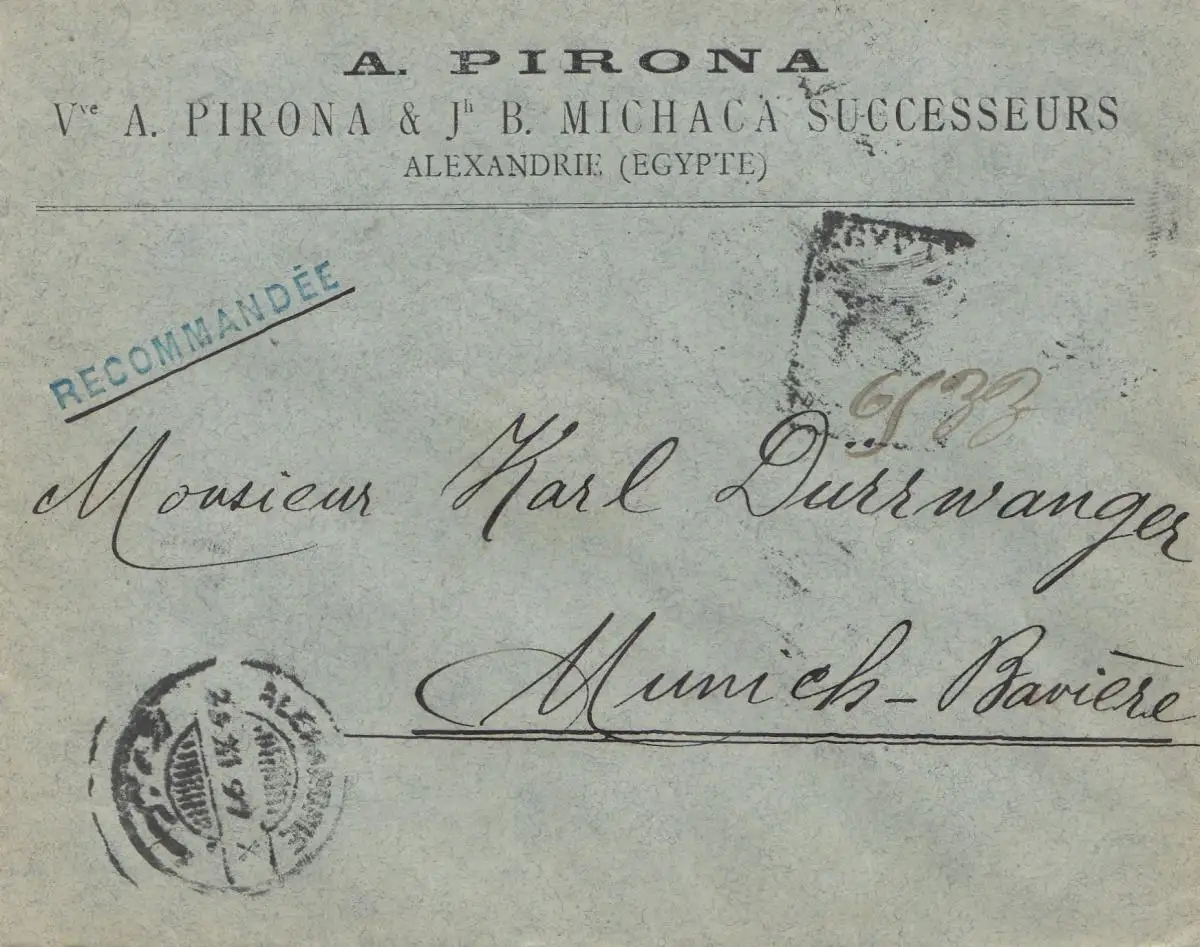 A. PIRONA
Vve A. PIRONA & Jh B. MICHACA SUCCESSEURS
ALEXANDRIE (EGYPTE)
EGYPTE
RECOMMANDÉE
Monsieur Karl Durrwanger
Munich - Bavière
ALEXANDRIE